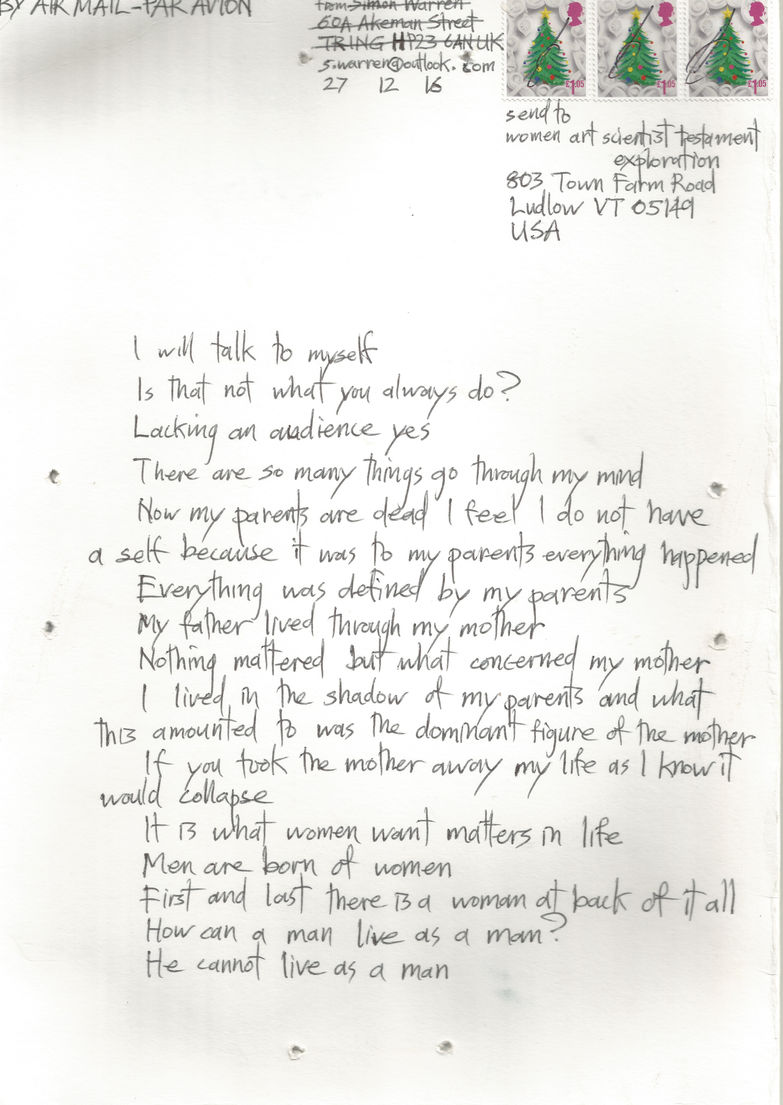 BY AIR MAIL-PAR AVION
from Simon Warren
60A Akeman Street
TRING HP23 6AN UK
s.warren@outlook.com
27 12 16
£1.05 £1.05 £1.05
send to
women art scientist testament
exploration
803 Town Farm Road
Ludlow VT 05149
USA
I will talk to myself
Is that not what you always do?
Lacking an audience yes
There are so many things go through my mind
Now my parents are dead I feel I do not have
a self because it was to my parents everything happened
Everything was defined by my parents
My father lived through my mother
Nothing mattered but what concerned my mother
I lived in the shadow of my parents and what
this amounted to was the dominant figure of the mother
If you took the mother away my life as I know it
would collapse
It is what women want matters in life
Men are born of women
First and last there is a woman at back of it all
How can a man live as a man?
He cannot live as a man